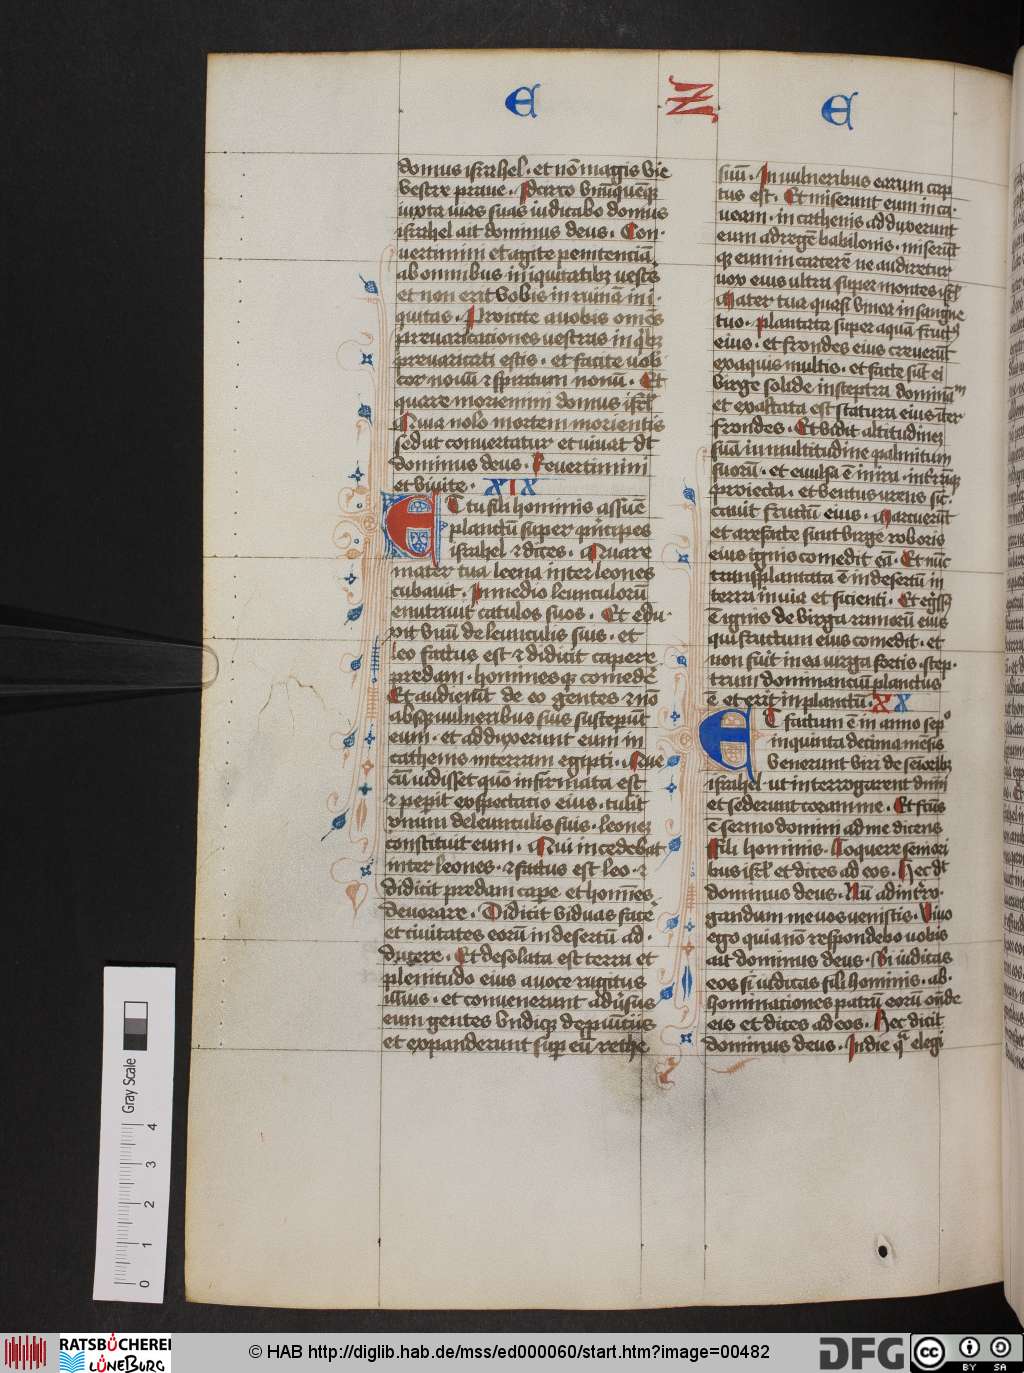 E Z E
domus israhel . et nō magis vie
vestre praue . Idcirco vnūquēqꝫ
iuxta uias suas iudicabo domus
israhel ait dominus deus . Con-
uertimini et agite penitenciā
ab omnibus iniquitatibꝫ vestis
et non erit vobis in ruinā ini-
quitas . Proicite a uobis omēs
preuaricationes vestras in qͥbꝫ
preuaricati estis . et facite uob
cor nouū ⁊ spiritum nouū . Et
quare moriemini domus isrl̄
Quia nolo mortem morientis
sed ut conuertatur et uiuat dt̄
dominus deus . Reuertimini
et viuite . XIX
Et tu fili hominis assūe
planctū super pͥncipes
israhel ⁊ dices . Quare
mater tua leena inter leones
cubauit . In medio leunculorū
enutriuit catulos suos . Et edu-
xit vnū de leunculis suis . et
leo factus est ⁊ didicit capere
predam . hominesqꝫ comedē
Et audierūt de eo gentes ⁊ nō
absqꝫ uulneribus suis suscepūt
eum . et adduxerunt eum in
cathenis in terram egipti . Que
cū uidisset quō infirmata est
⁊ periit exspectatio eius . tulit
vnum de leunculis suis . leonē
constituit eum . Qui incedebat
inter leones . ⁊ factus est leo . ⁊
didicit predam cape et homīes
deuorare . Didicit viduas facē
et ciuitates eorū in desertū ad-
ducere . Et desolata est terra et
plenitudo eius a uoce rugitus
illius . et conuenerunt adūsus
eum gentes vndiqꝫ de puīciis
et expanderunt sup eū rethe
suū . In uulneribus earum cap
tus est . Et miserunt eum in ca-
ueam . in cathenis adduxerunt
eum ad regē babilonis . miserūt
qꝫ eum in carcerē ne audiretur
uox eius ultra super montes isrl̄
Mater tua quasi vinea in sangͥne
tuo . plantata super aquā fructꝯ
eius . et frondes eius creuerūt
ex aquis multis . et facte sūt ei
virge solide in sceptra dominā
et exaltata est statura eius iter
frondes . Et vidit altitudinē
suā in multitudine palmitum
suorū . et euulsa ē in ira . in t̄rāqꝫ
proiecta . et ventus urens sic-
cauit fructū eius . Marcuerūt
et arefacte sūt virge roboris
eius ignis comedit eā . Et nūc
transplantata ē in desertū in
terra inuia et sicienti . Et eg̃ssꝯ
ē ignis de virga ramorū eius
qui fructum eius comedit . et
non fuit in ea uirga fortis . scep-
trum dominanciū planctus
ē et erit in planctū . XX
Et factum ē in anno sepͦ
in quinta decima mēsis
venerunt viri de seniorībꝫ
israhel ut interrogarent dnm̄
et sederunt coram me . Et fcūs
ē sermo domini ad me dicens
Fili hominis . Loquere seniori
bus isrl̄ et dices ad eos . Hec dt̄
dominus deus . Nū ad int̄ro-
gandum me uos uenistis . Viuo
ego quia nō respondebo uobis
ait dominus deus . Si iudicas
eos si iudicas fili hominis . ab-
hominationes patrū eorū ondē
eis et dices ad eos . Hec dicit
dominus deus . In die qͣ elegi
Gray Scale
0 1 2 3 4
RATSBÜCHEREI
LÜNEBURG
© HAB http://diglib.hab.de/mss/ed000060/start.htm?image=00482
DFG
cc BY SA